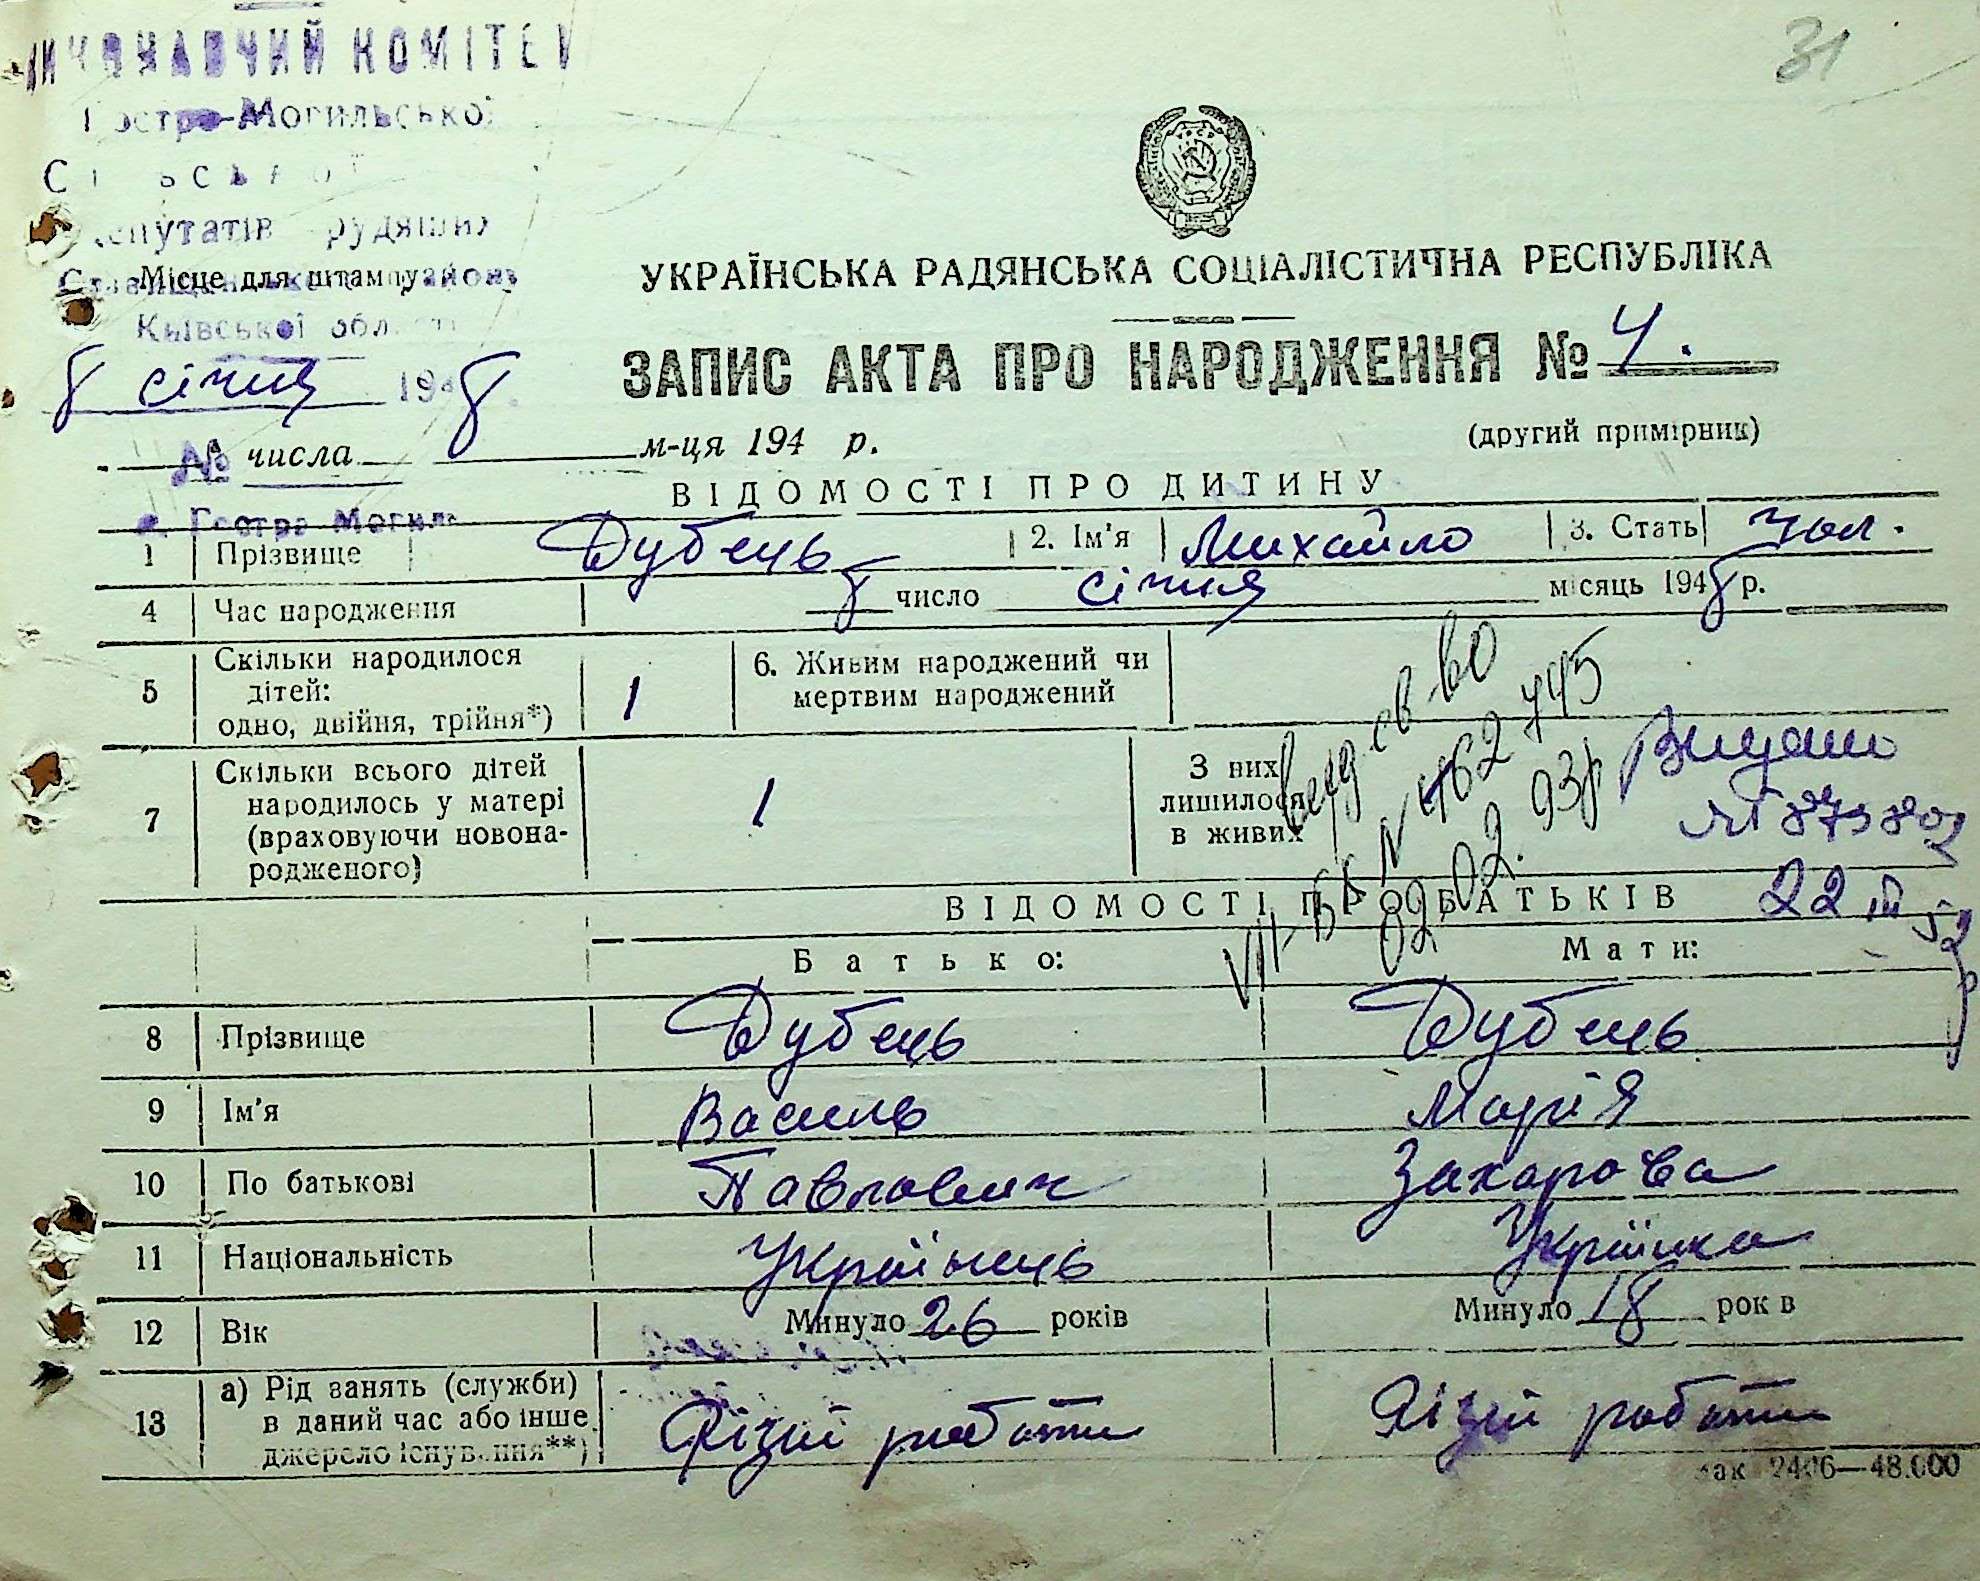 31
ИКОНАВЧИЙ КОМІТЕ
Гостро-Могильської
депутатів трудящих
Місце для штампу
Київської обл
8 січня 1948
№ числа м-ця 194 р.
с. Гостра Могил
УКРАЇНСЬКА РАДЯНСЬКА СОЦІАЛІСТИЧНА РЕСПУБЛІКА
ЗАПИС АКТА ПРО НАРОДЖЕННЯ № 4.
(другий примірник)
ВІДОМОСТІ ПРО ДИТИНУ
1 Прізвище Дубець 2. Ім'я Михайло 3. Стать чол.
4 Час народження 8 число січня місяць 1948 р.
5 Скільки народилося
дітей:
одно, двійня, трійня*) 1 6. Живим народжений чи
мертвим народжений
7 Скільки всього дітей
народилось у матері
(враховуючи новона-
родженого) 1 З них
лишилося
в живих
св-во
VII-БК N 462745
02.02.93р
Видано
873802
22 III 52р
ВІДОМОСТІ ПРО БАТЬКІВ
Батько: Мати:
8 Прізвище Дубець Дубець
9 Ім'я Василь Марія
10 По батькові Павлович Захаровна
11 Національність Українець Українка
12 Вік Минуло 26 років Минуло 18 рок в
13 а) Рід занять (служби)
в даний час або інше
джерело існування**) Фізичні роботи Фізичні роботи
зак 2406—48.000